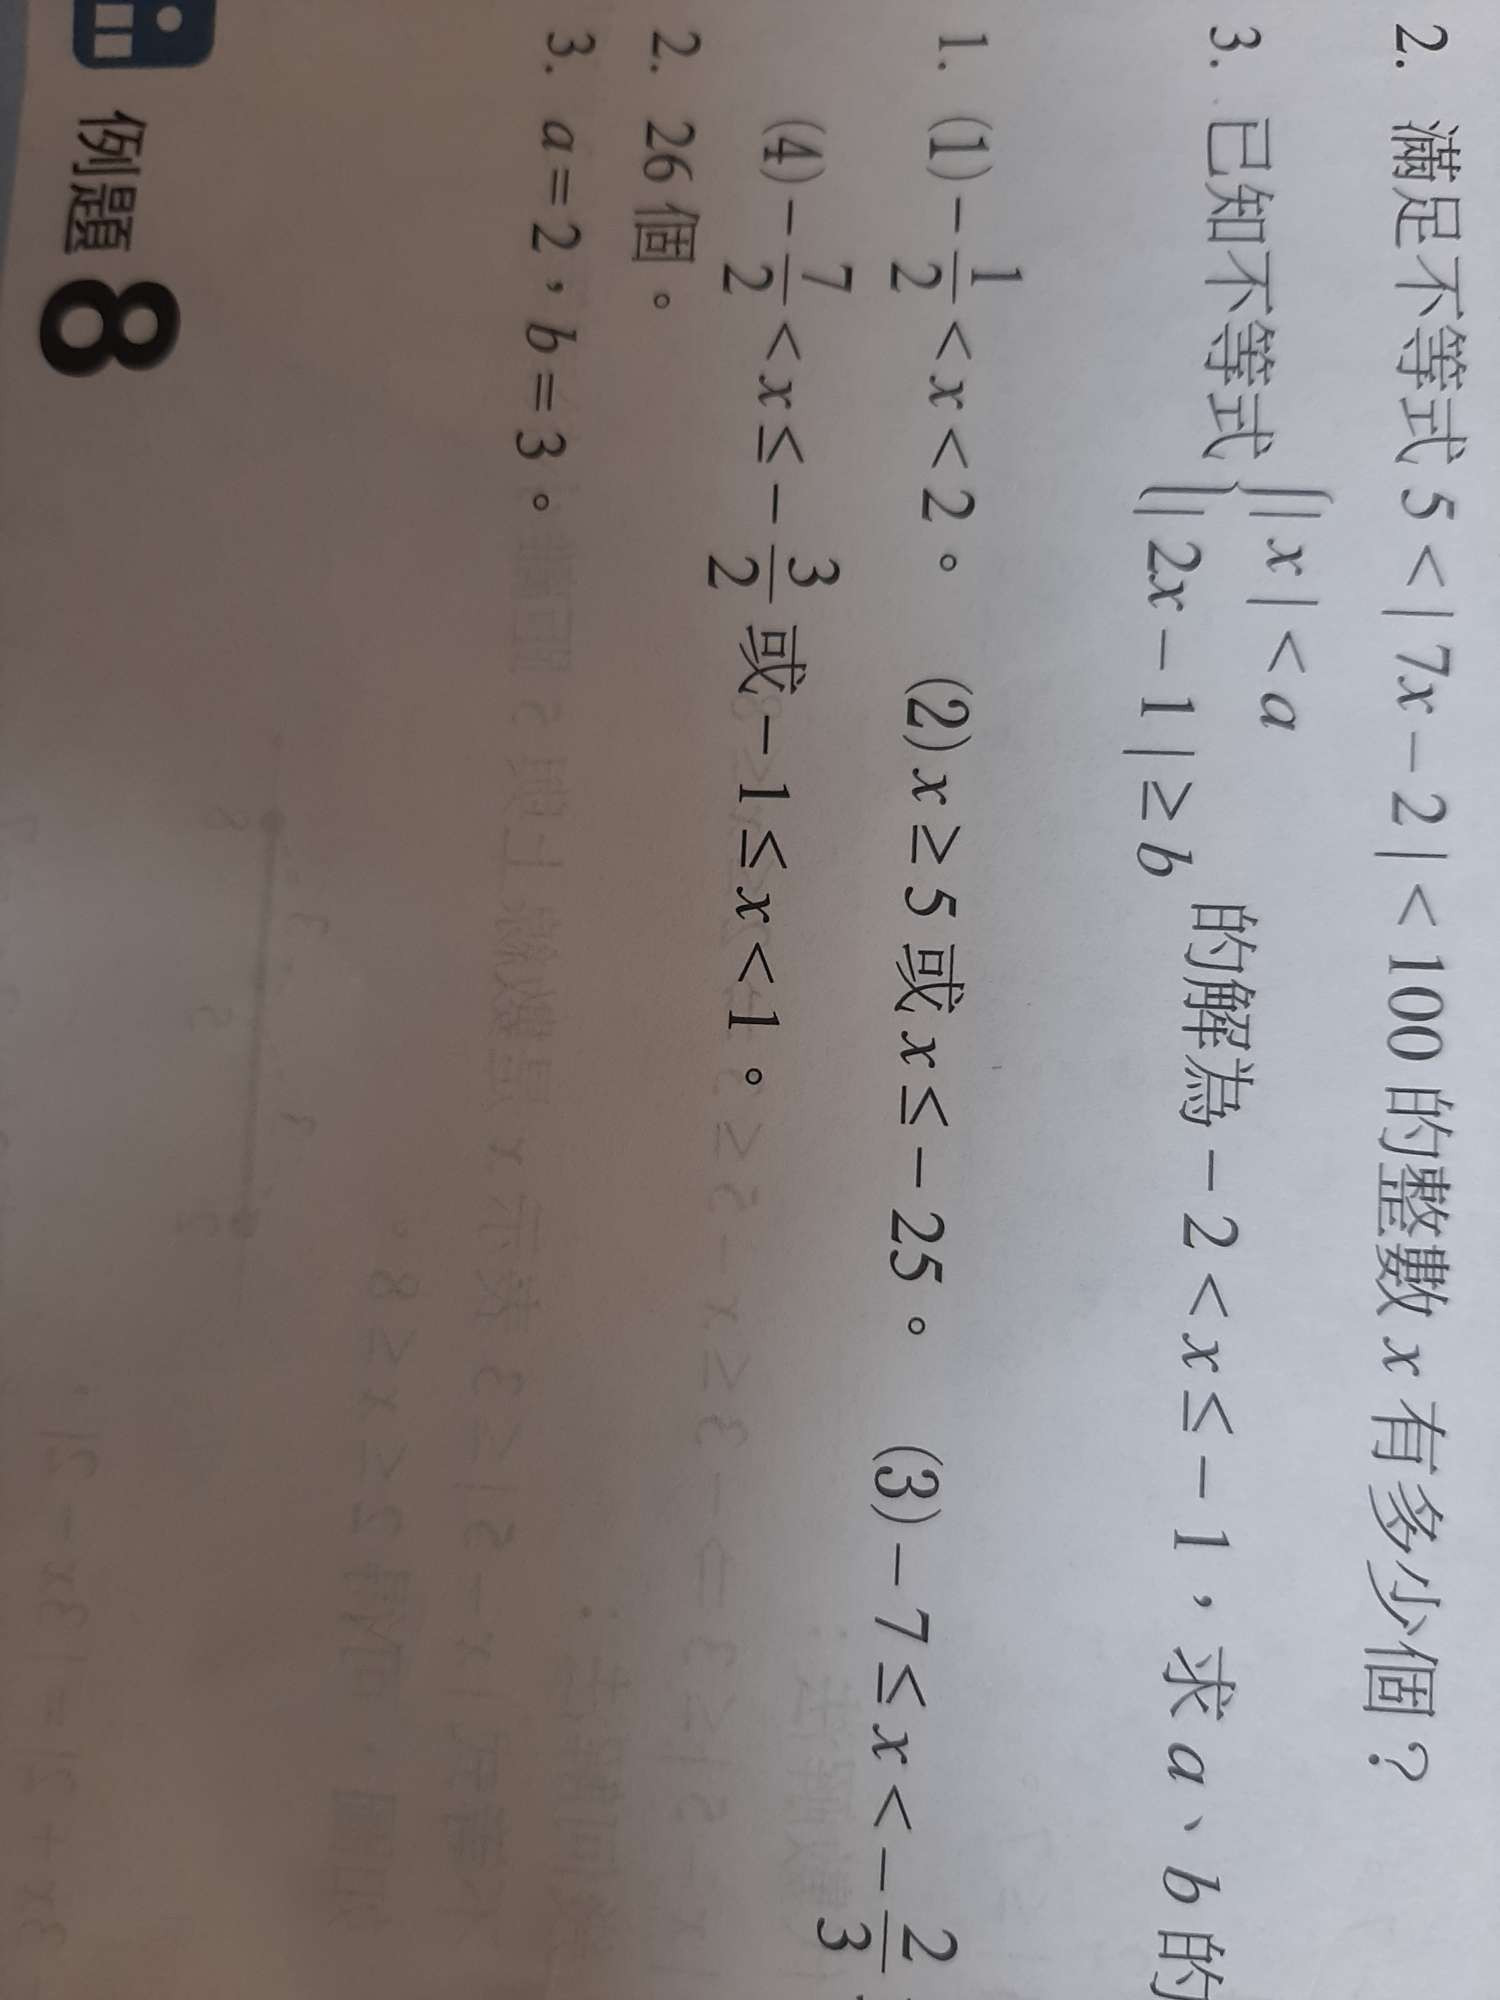 2. 滿足不等式 5 < | 7x − 2 | < 100 的整數 x 有多少個？
3. 已知不等式 { | x | < a
| 2x − 1 | ≥ b 的解為 − 2 < x ≤ − 1，求 a、b 的
1. (1) − 1/2 < x < 2。 (2) x ≥ 5 或 x ≤ − 25。 (3) − 7 ≤ x < − 2/3
(4) − 7/2 < x ≤ − 3/2 或 − 1 ≤ x < 1。
2. 26 個。
3. a = 2，b = 3。
例題 8